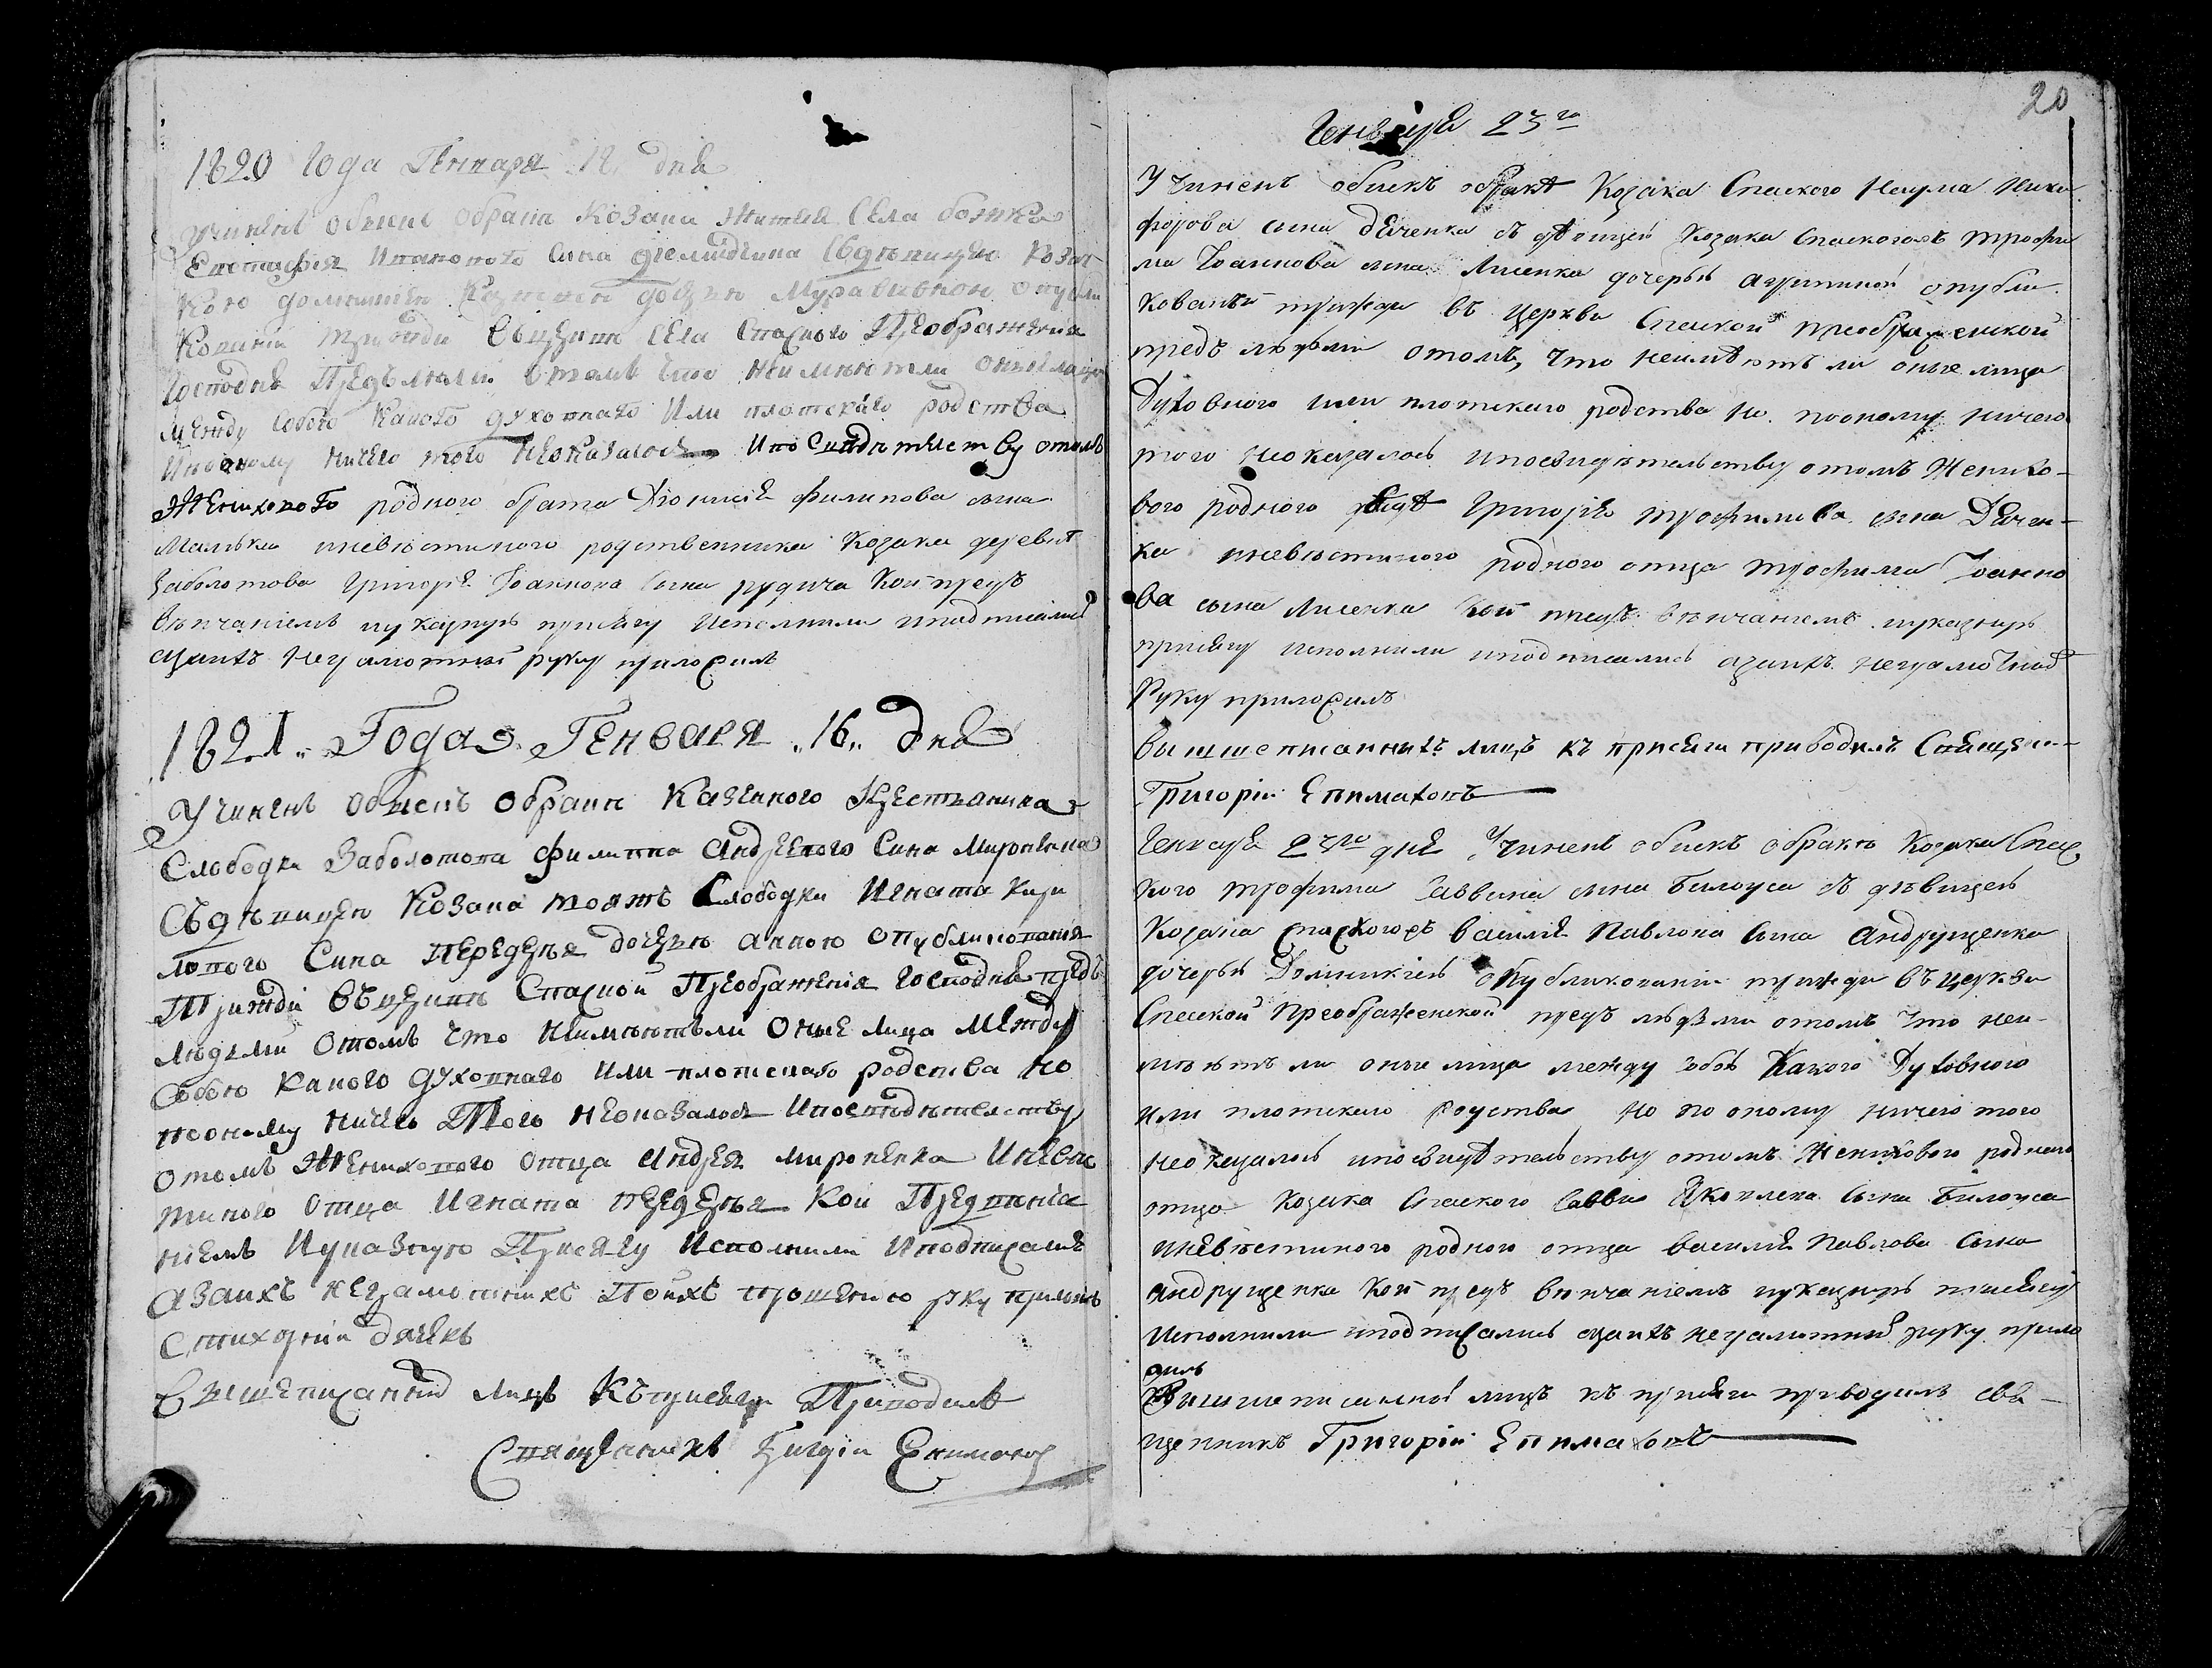 1820 Года Генваря 18 дня
Учиненъ обыскъ обракѣ Козака Жителя Села божка
Евстафія Иванового Сина съдѣвицею Козач
кою дочерью Муравьивною опубли
кованіи трижди вцеркви Села Спаского Преображенія
Господня Предълюдми отомъ что неимѣютли оныелица
между собою какого духовнаго Или плотскаго родства
Ипооному ничего того неоказалося Ипо Свидѣтельству отомъ
Жениховото родного брата Діонисія Филипова сына
Малька иневѣстиного родственника Козака деревнѣ
Заболотова Григорія Іоаннова Сына рудича Кои предъ
вѣнчаніемъ иуказную присягу Исполнили иподписались
азаихъ Неграмотный руку приложилъ
1821. Года Генваря „16„ Дня
Учиненъ обыскъ обракѣ Казенного Крестянина
Слободки Заболотова филиппа Андреевого Сина Мироненка
Съдѣвицею Козака тояжъ Слободки Игната Кири
лового Сина передерея дочерю анною опубликованія
Трижди вцеркви Спаской Преображенія Господня предъ
людми Отомъ что Неимѣютъли Оные Лица Между
Собою какого духовнаго Или плотскаго родства но
пооному ничего Того неоказалося Ипосвидѣтелству
отомъ Женихового отца Андрея мироненка Иневѣс
тиного отца Игната передерея Кои Предвѣнча
ніемъ Иуказную Присягу Исполнили Иподписалис
азаихъ неграмотнихъ Поихъ прошению рку приложилъ
Стихарній дячекъ
Вишеписанній Лицъ Къприсяги Приводилъ
Священникъ Григорій Епимаховъ
20
Генваря 23го
Учиненъ обыскъ обракѣ Козака Спаского Наума Ники
форова сына Дяченка съ дѣвицей Козака Спаскогожъ Трофи
ма Іоаннова сына Лисенка дочерью опубли
кованы трижди въ Церкви Спаской преображенской
предъ людьми отомъ, что неимѣютъ ли оные лица
Духовного или плотскаго родства но пооному ничего
того неоказалось ипосвидѣтельству отомъ Женихо-
вого родного дядѣ Григорія Трофимова сына Дячен-
ка иневѣстиного родного отца трофима Іоанно
ва сына Лисенка Кои предъ вѣнчаніемъ иуказную
присягу исполнили иподписались азаихъ неграмотной
Руку приложилъ
Вышшеписаннихъ лицъ къ присяги приводилъ Священ-
Григорій Епимаховъ
Генваря 23го дня Учиненъ обыскъ обракѣ Козака Спас
кого Трофима Саввина сына Билоуса съ дѣвицею
Козака спаскогожъ Василія Павлова Сына Андрущенка
дочерью Домникіею опубликованіи трижди въ церкви
Спаской Преображенской предъ людми отомъ что неи-
мѣютъ ли оные лица между собою Какого Духовного
или плотскаго родства Но по оному ничего того
неоказалось ипосвидѣтельству отомъ Женихового родного
отца Козака Спаского Саввы Яковлева Сына Билоуса
иневѣстиного родного отца Василія Павлова Сына
андрущенка Кои предъ вѣнчаніемъ иуказную присягу
Исполнили иподписались азаихъ неграмотный руку прило
жилъ
Вышшеписанной лицъ къ присяги приводилъ свя-
щенникъ Григорій Епимаховъ